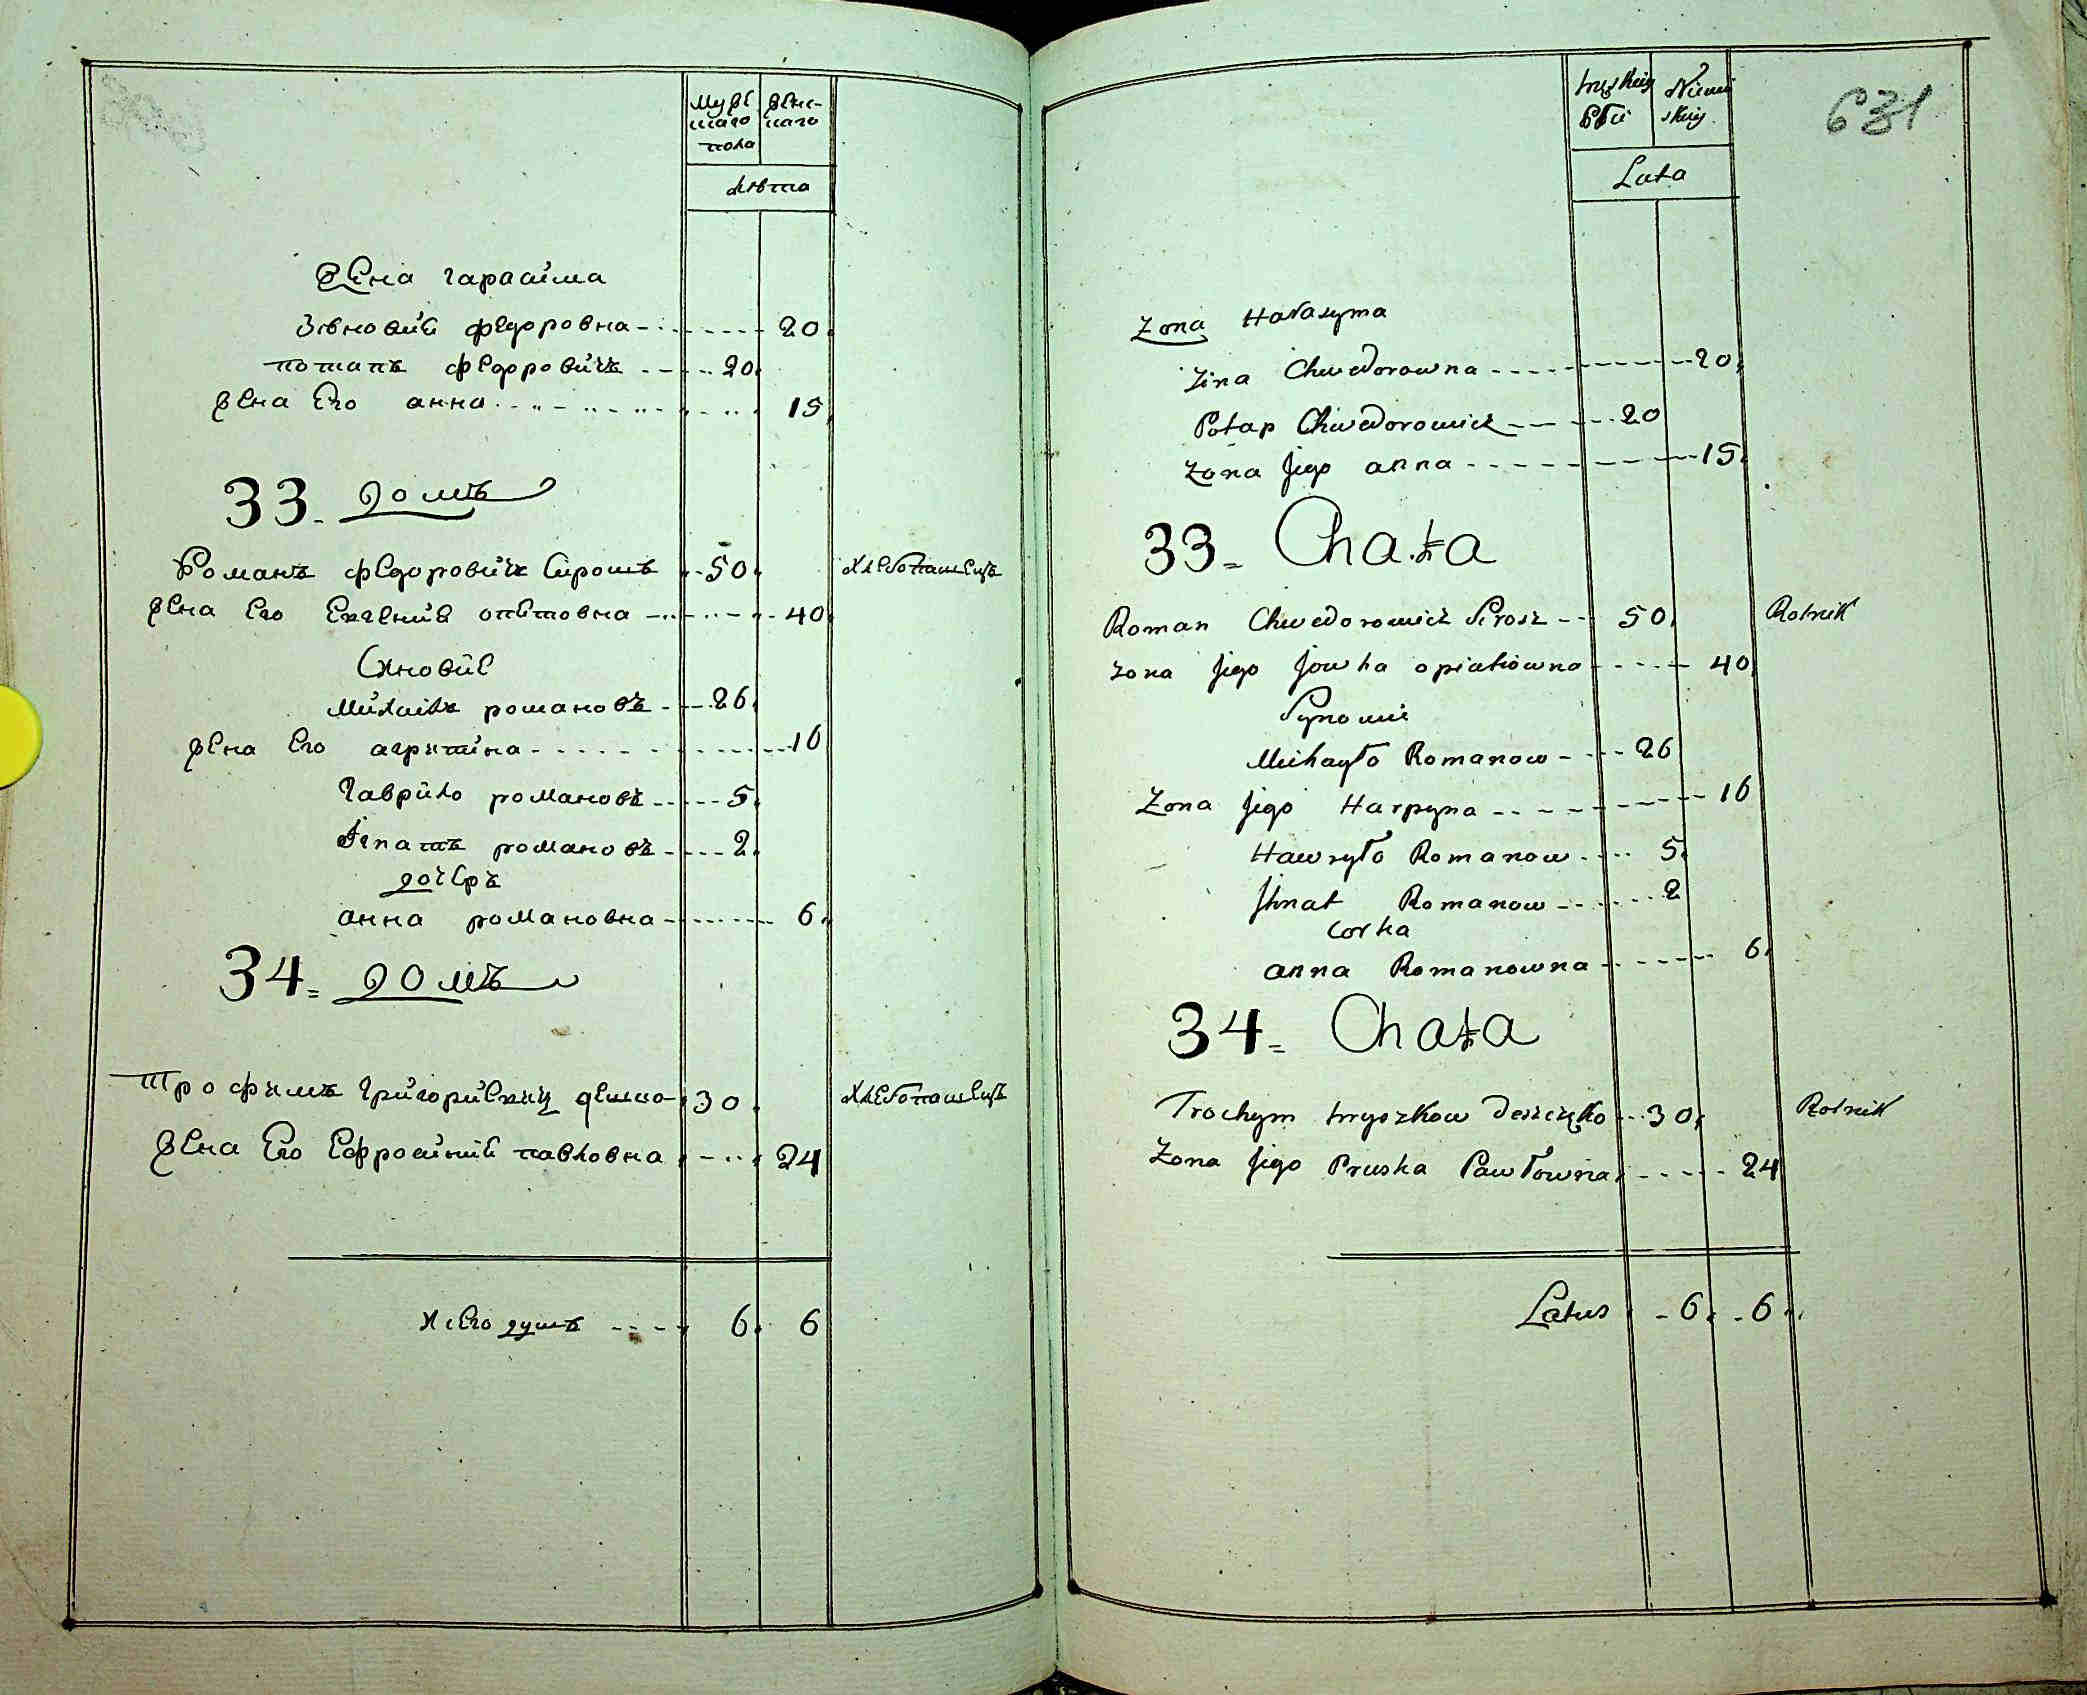 Мужескаго пола
женскаго
лѣта
жена гарасима
Зѣновий федоровна 20
потапъ федоровичъ 20
жена Его анна 15
33. домъ
Романъ федоровичъ Сирошъ 50 хлебопашецъ
жена Его Евгения опатовна 40
Сыновие
Михаилъ романовъ 26
жена Его агрипина 16
Гаврило романовъ 5
Игнатъ романовъ 2
дочеръ
анна романовна 6
34. домъ
Трофимъ Григориевичъ 30 хлебопашецъ
жена Его Ефросиния павловна 24
всего душъ 6 6
631
Płci
Lata
Zona Harasyma
Zina Chwedorowna 20
Potap Chwedorowicz 20
Zona Jego anna 15
33= Chata
Roman Chwedorowicz Sirosz 50 Rolnik
Zona Jego Jowha opiatiowna 40
Synowie
Michayło Romanow 26
Zona Jego Harpyna 16
Hawryło Romanow 5
Jhnat Romanow 2
Corka
anna Romanowna 6
34= Chata
Trochym hryszkow Deszczyło 30 Rolnik
Zona Jego Pruska Pawłowna 24
Latus 6 6